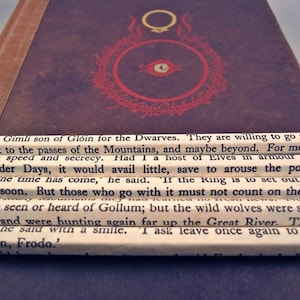 Gimli son of Glóin for the Dwarves. They are willing to go
to the passes of the Mountains, and maybe beyond. For me
speed and secrecy. Had I a host of Elves in armour
der Days, it would avail little, save to arouse the po
the time has come,' he said. 'If the Ring is to set out
soon. But those who go with it must not count on the
seen or heard of Gollum; but the wild wolves were s
and were hunting again far up the Great River. T
he said with a smile. 'I ask leave once again to
n, Frodo.'